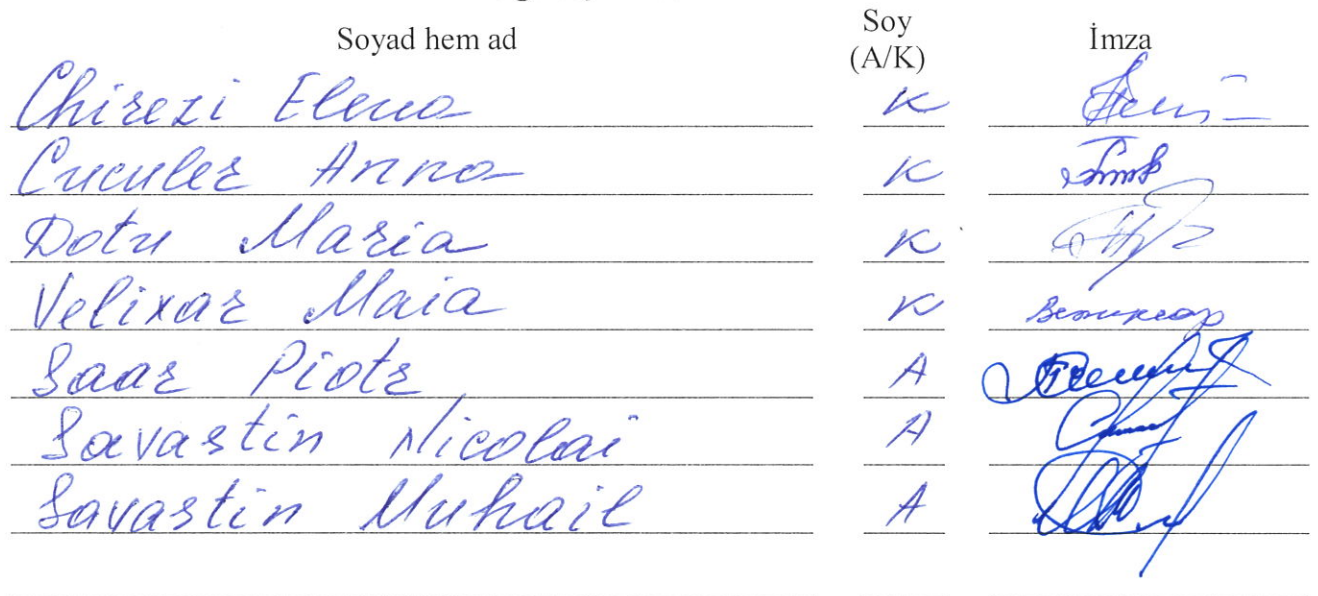 Soyad hem ad Soy (A/K) İmza
Chirezi Elena K
Cuculer Anna K
Dotu Maria K
Velixar Maia K Великсар
Saar Piotr A
Savastin Nicolai A
Savastin Muhail A